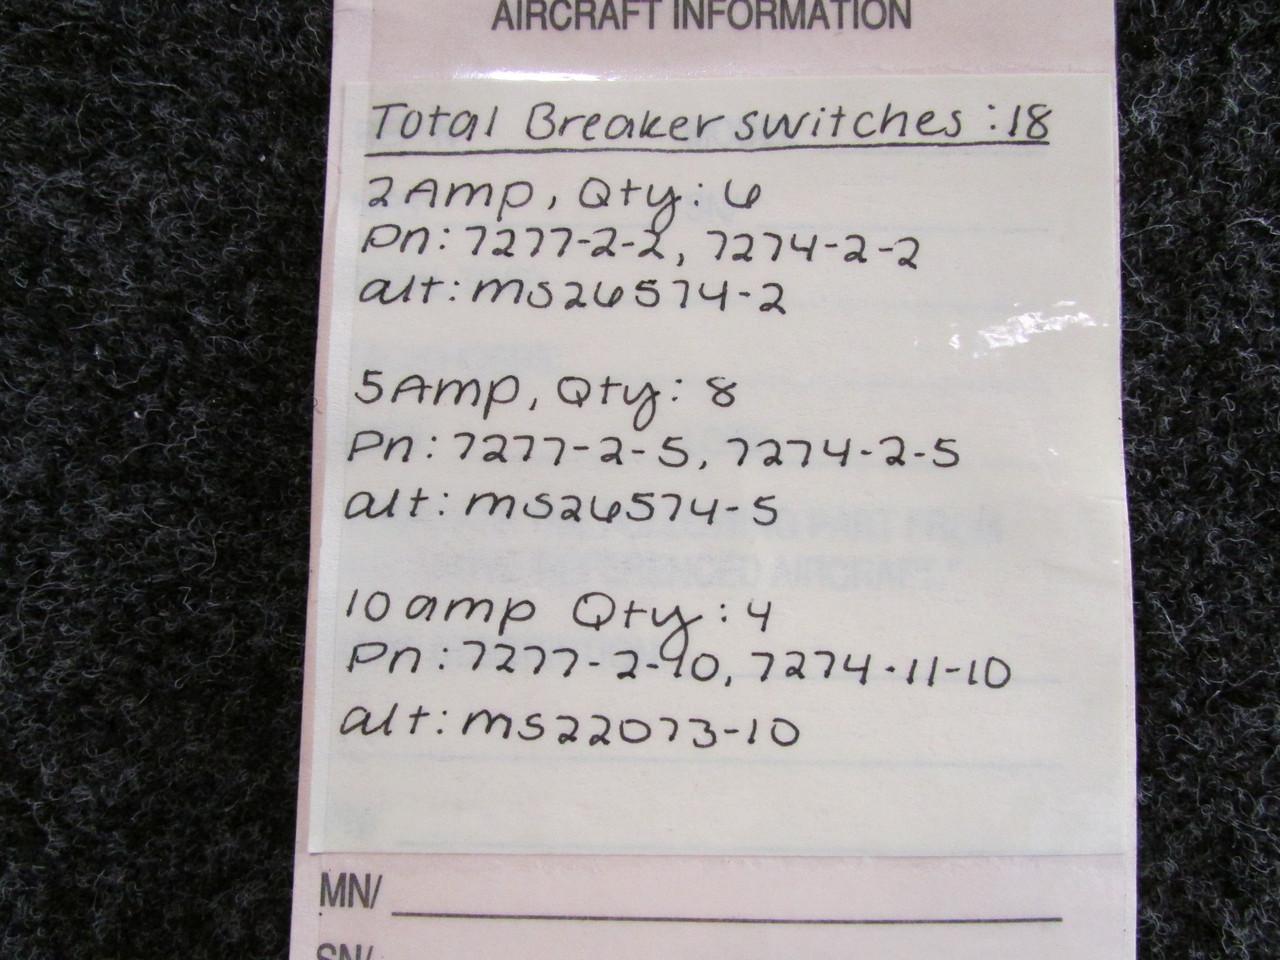 AIRCRAFT INFORMATION
Total Breaker switches : 18
2 Amp, Qty: 6
Pn: 7277-2-2, 7274-2-2
alt: ms26574-2
5 Amp, Qty: 8
Pn: 7277-2-5, 7274-2-5
alt: ms26574-5
10 amp Qty: 4
Pn: 7277-2-10, 7274-11-10
alt: ms22073-10
MN/
SN/